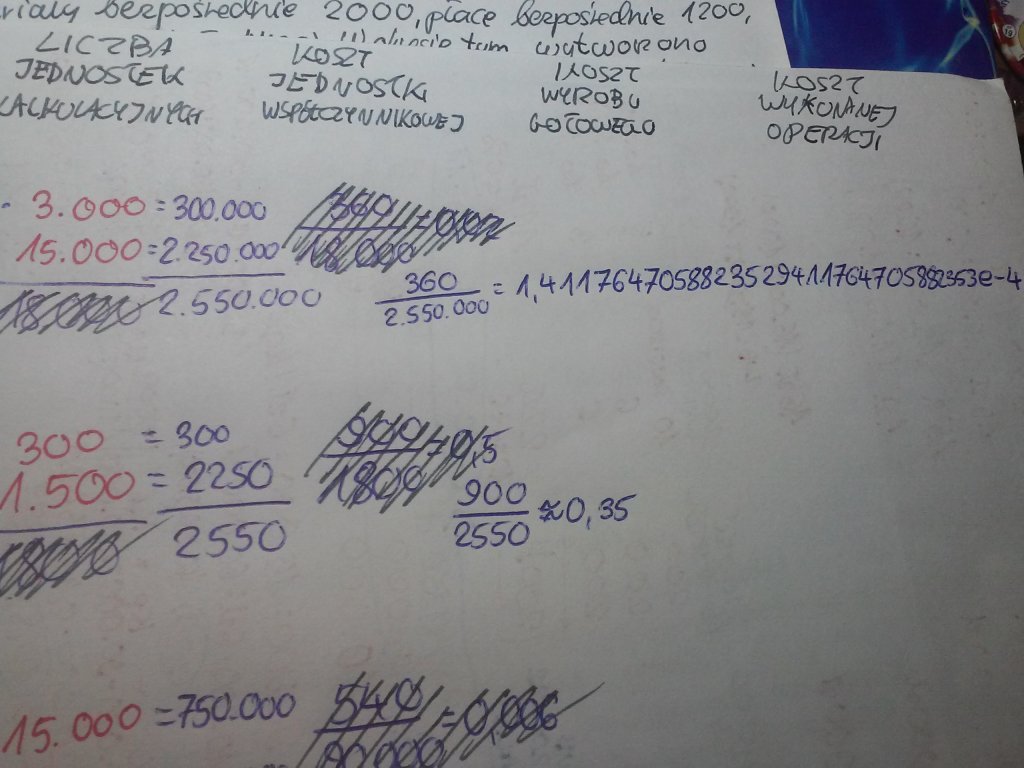 riały bezpośrednie 2000, płace bezpośrednie 1200,
tym wytworzono
LICZBA
JEDNOSTEK
KALKULACYJNYCH
KOSZT
JEDNOSTKI
WSPÓŁCZYNNIKOWEJ
KOSZT
WYROBU
GOTOWEGO
KOSZT
WYKONANEJ
OPERACJI
3.000 = 300.000
15.000 = 2.250.000
18.000 2.550.000
360
18.000
360 / 2.550.000 = 1,4117647058823529411764705882353e-4
300 = 300
1.500 = 2250
2550
900 / 1800 = 0,5
900 / 2550 ≈ 0,35
15.000 = 750.000
540
90.000 = 0,006